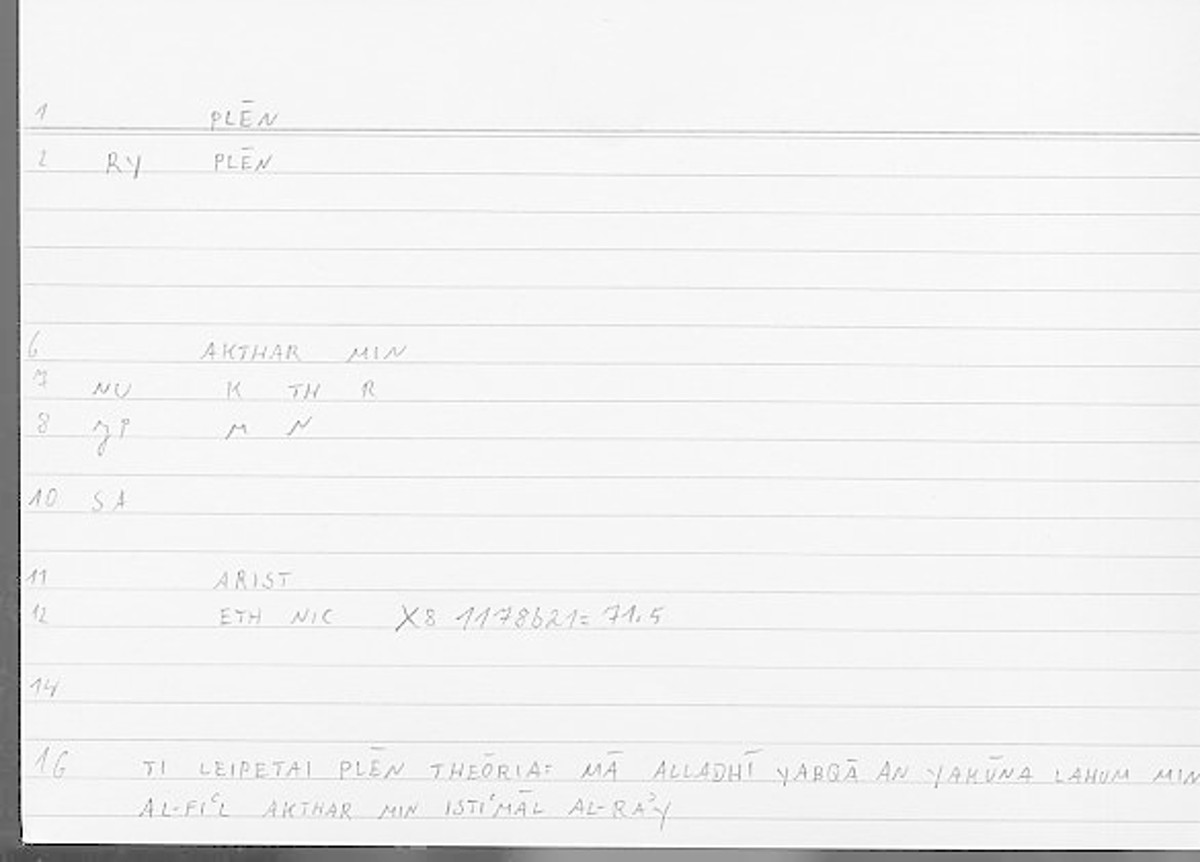 1 PLĒN
2 RY PLĒN
6 AKTHAR MIN
7 NU K TH R
8 M N
10 SA
11 ARIST
12 ETH NIC X8 1178b21= 71.5
14
16 TI LEIPETAI PLĒN THEŌRIA= MĀ ALLADHĪ YABQĀ AN YAKŪNA LAHUM MIN
AL-FIʿL AKTHAR MIN ISTIʿMĀL AL-RAʾY